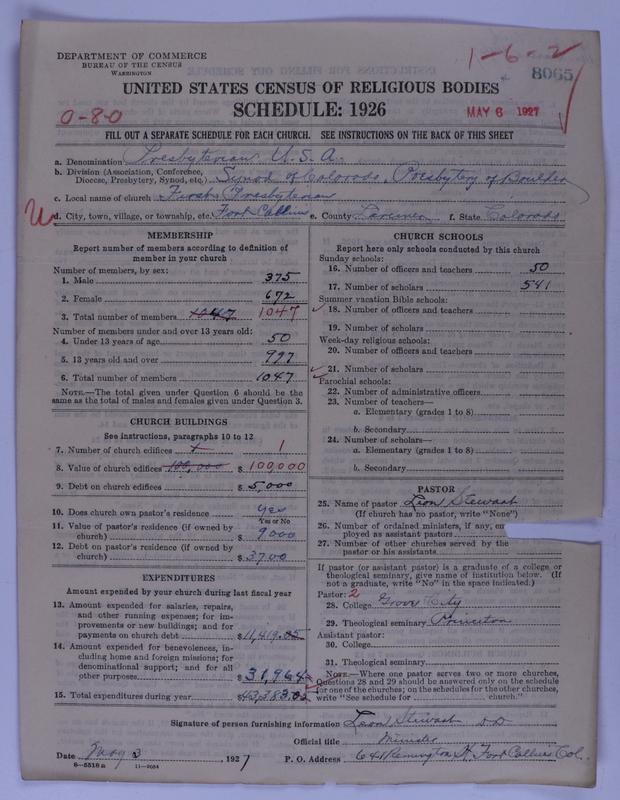 DEPARTMENT OF COMMERCE
BUREAU OF THE CENSUS
WASHINGTON
1-6-2
8065
UNITED STATES CENSUS OF RELIGIOUS BODIES
SCHEDULE: 1926
0-80
MAY 6 1927
FILL OUT A SEPARATE SCHEDULE FOR EACH CHURCH. SEE INSTRUCTIONS ON THE BACK OF THIS SHEET
a. Denomination Presbyterian U.S.A.
b. Division (Association, Conference, Diocese, Presbytery, Synod, etc.) Synod of Colorado, Presbytery of Boulder
c. Local name of church First Presbyterian
d. City, town, village, or township, etc. Fort Collins e. County Larimer f. State Colorado
MEMBERSHIP
Report number of members according to definition of
member in your church
Number of members, by sex:
1. Male 375
2. Female 672
3. Total number of members 1047 1047
Number of members under and over 13 years old:
4. Under 13 years of age 50
5. 13 years old and over 997
6. Total number of members 1047
NOTE.—The total given under Question 6 should be the
same as the total of males and females given under Question 3.
CHURCH BUILDINGS
See instructions, paragraphs 10 to 12
7. Number of church edifices 1
8. Value of church edifices 100,000 $ 100,000
9. Debt on church edifices $ 5,000
10. Does church own pastor's residence Yes
Yes or No
11. Value of pastor's residence (if owned by
church) $ 9000
12. Debt on pastor's residence (if owned by
church) $ 3700
EXPENDITURES
Amount expended by your church during last fiscal year
13. Amount expended for salaries, repairs,
and other running expenses; for im-
provements or new buildings; and for
payments on church debt $
14. Amount expended for benevolences, in-
cluding home and foreign missions; for
denominational support; and for all
other purposes $ 31,964
15. Total expenditures during year $
CHURCH SCHOOLS
Report here only schools conducted by this church
Sunday schools:
16. Number of officers and teachers 50
17. Number of scholars 541
Summer vacation Bible schools:
18. Number of officers and teachers
19. Number of scholars
Week-day religious schools:
20. Number of officers and teachers
21. Number of scholars
Parochial schools:
22. Number of administrative officers
23. Number of teachers—
a. Elementary (grades 1 to 8)
b. Secondary
24. Number of scholars—
a. Elementary (grades 1 to 8)
b. Secondary
PASTOR
25. Name of pastor Leon Stewart
(If church has no pastor, write "None")
26. Number of ordained ministers, if any, em-
ployed as assistant pastors
27. Number of other churches served by the
pastor or his assistants
If pastor (or assistant pastor) is a graduate of a college or
theological seminary, give name of institution below. (If
not a graduate, write "No" in the space indicated.)
Pastor: 2
28. College Grove City
29. Theological seminary Princeton
Assistant pastor:
30. College
31. Theological seminary
NOTE.—Where one pastor serves two or more churches,
Questions 28 and 29 should be answered only on the schedule
for one of the churches; on the schedules for the other churches,
write "See schedule for church."
Signature of person furnishing information Leon Stewart D.D.
Official title Minister
Date May 3 1927 P. O. Address 641 Remington St. Fort Collins Col.
8-5518a 11-9084